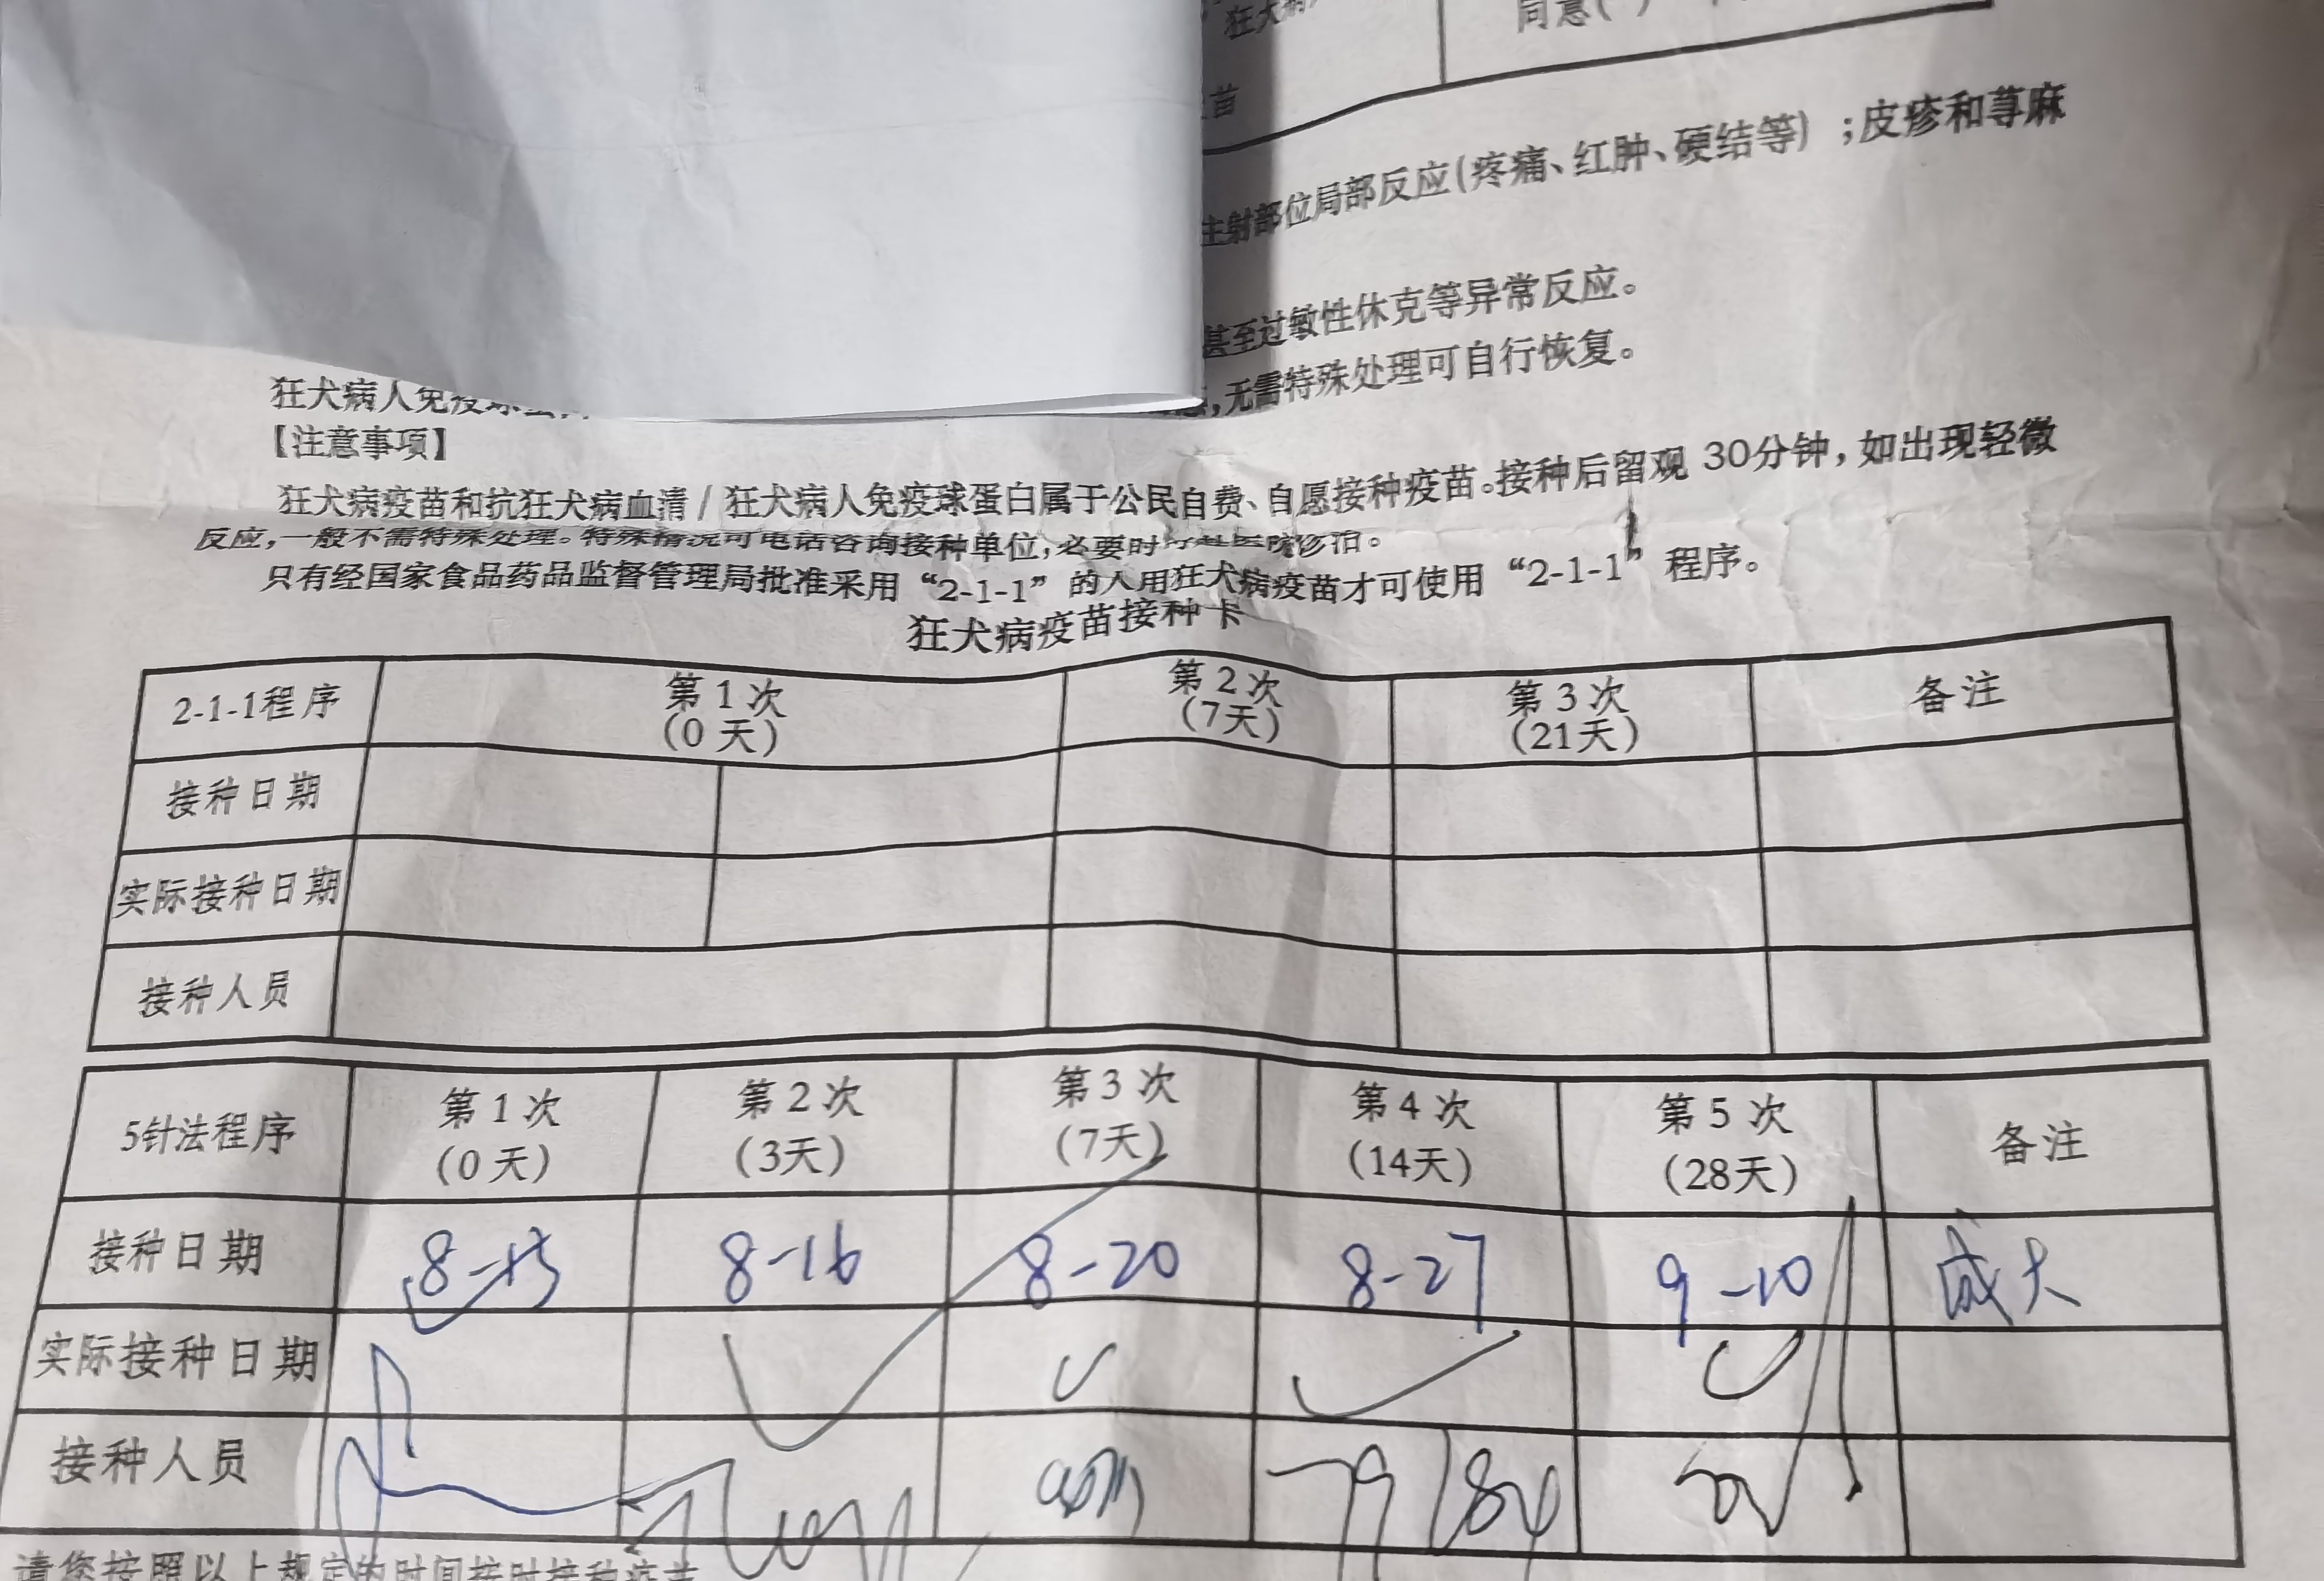 同意( )
苗
注射部位局部反应(疼痛、红肿、硬结等)；皮疹和荨麻
甚至过敏性休克等异常反应。
，无需特殊处理可自行恢复。
狂犬病人免疫球蛋白
【注意事项】
狂犬病疫苗和抗狂犬病血清/狂犬病人免疫球蛋白属于公民自费、自愿接种疫苗。接种后留观 30分钟，如出现轻微
反应，一般不需特殊处理。特殊情况可电话咨询接种单位，必要时 医院诊治。
只有经国家食品药品监督管理局批准采用“2-1-1”的人用狂犬病疫苗才可使用“2-1-1”程序。
狂犬病疫苗接种卡
2-1-1程序 第1次 第2次 第3次 备注
(0天) (7天) (21天)
接种日期
实际接种日期
接种人员
5针法程序 第1次 第2次 第3次 第4次 第5次 备注
(0天) (3天) (7天) (14天) (28天)
接种日期 8-13 8-16 8-20 8-27 9-10 成大
实际接种日期 ✓ ✓ ✓ ✓ ✓
接种人员
请您按照以上规定的时间按时接种疫苗